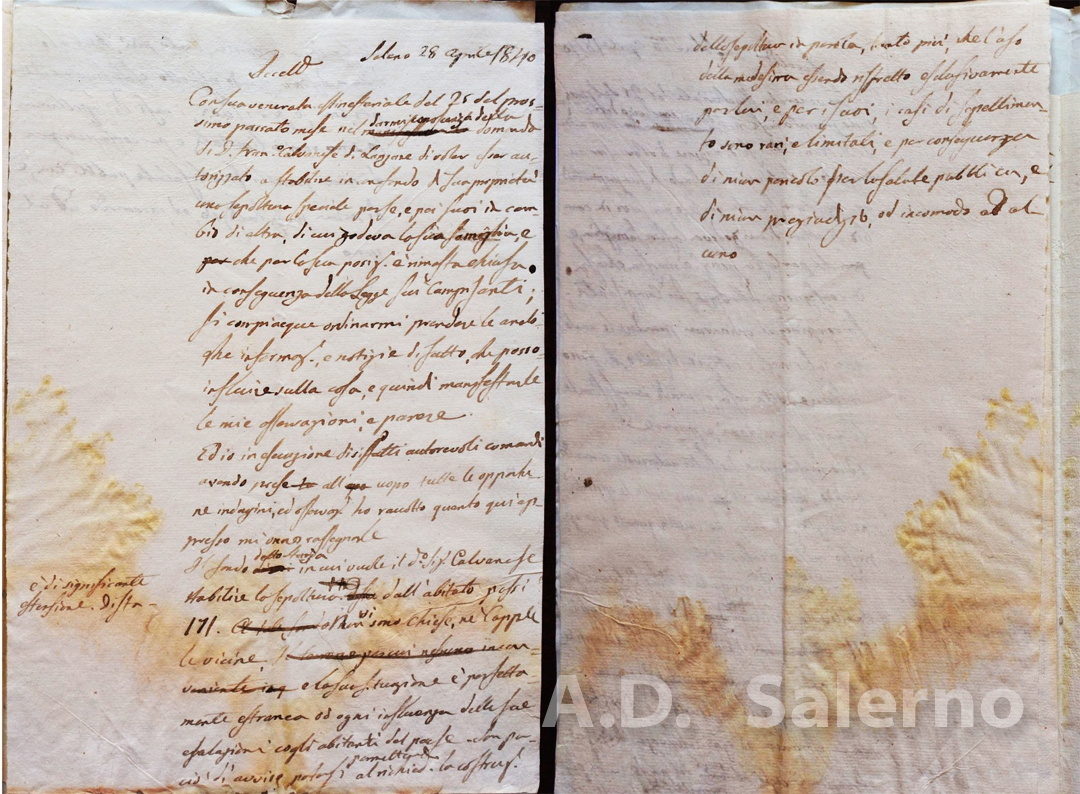 Salerno 28 Aprile 1840
Eccell.
Con sua venerata Ministeriale del 25 del pros-
simo passato mese nel darmi conoscenza della domanda
di D. Fran.º Calvanese di Lanzara di voler esser au-
torizzato a stabilire in un fondo di sua proprietà
una sepoltura speciale per se, e pei suoi in cam-
bio di altra, di cui godeva la sua famiglia, e
che per la sua posiz. è rimasta chiusa
in conseguenza della Legge sui Campisanti;
si compiacque ordinarmi prendere le analo-
ghe informaz.i, e notizie di fatto, che posso-
influire sulla cosa, e quindi manifestarle
le mie osservazioni, e parere.
Ed io in esecuzione di siffatti autorevoli comandi
avendo prese all' uopo tutte le opportu-
ne indagini, ed osservaz.i ho raccolto quanto qui ap-
presso mi onoro rassegnarle
Il fondo dello stesso in cui vuole il d.º Sig. Calvanese
stabilire la sepoltura
è di significante
estensione. Dista-
dall'abitato passi
171. non vi sono Chiese, nè Cappel-
le vicine, e la sua situazione è perfetta-
mente estranea ad ogni influenza delle sue
esalazioni cogli abitanti del paese. Son per-
ciò di avviso potersi permettere al richied. la costruz.
della sepoltura in parola, tanto più, che l'uso
della medesima essendo ristretto esclusivamente
per lui, e per i suoi, i casi di seppellimen-
to sono rari, e limitati, e per conseguenza
di niun pericolo per la salute pubblica, e
di niun pregiudizio, od incomodo ad al-
cuno
A.D. Salerno